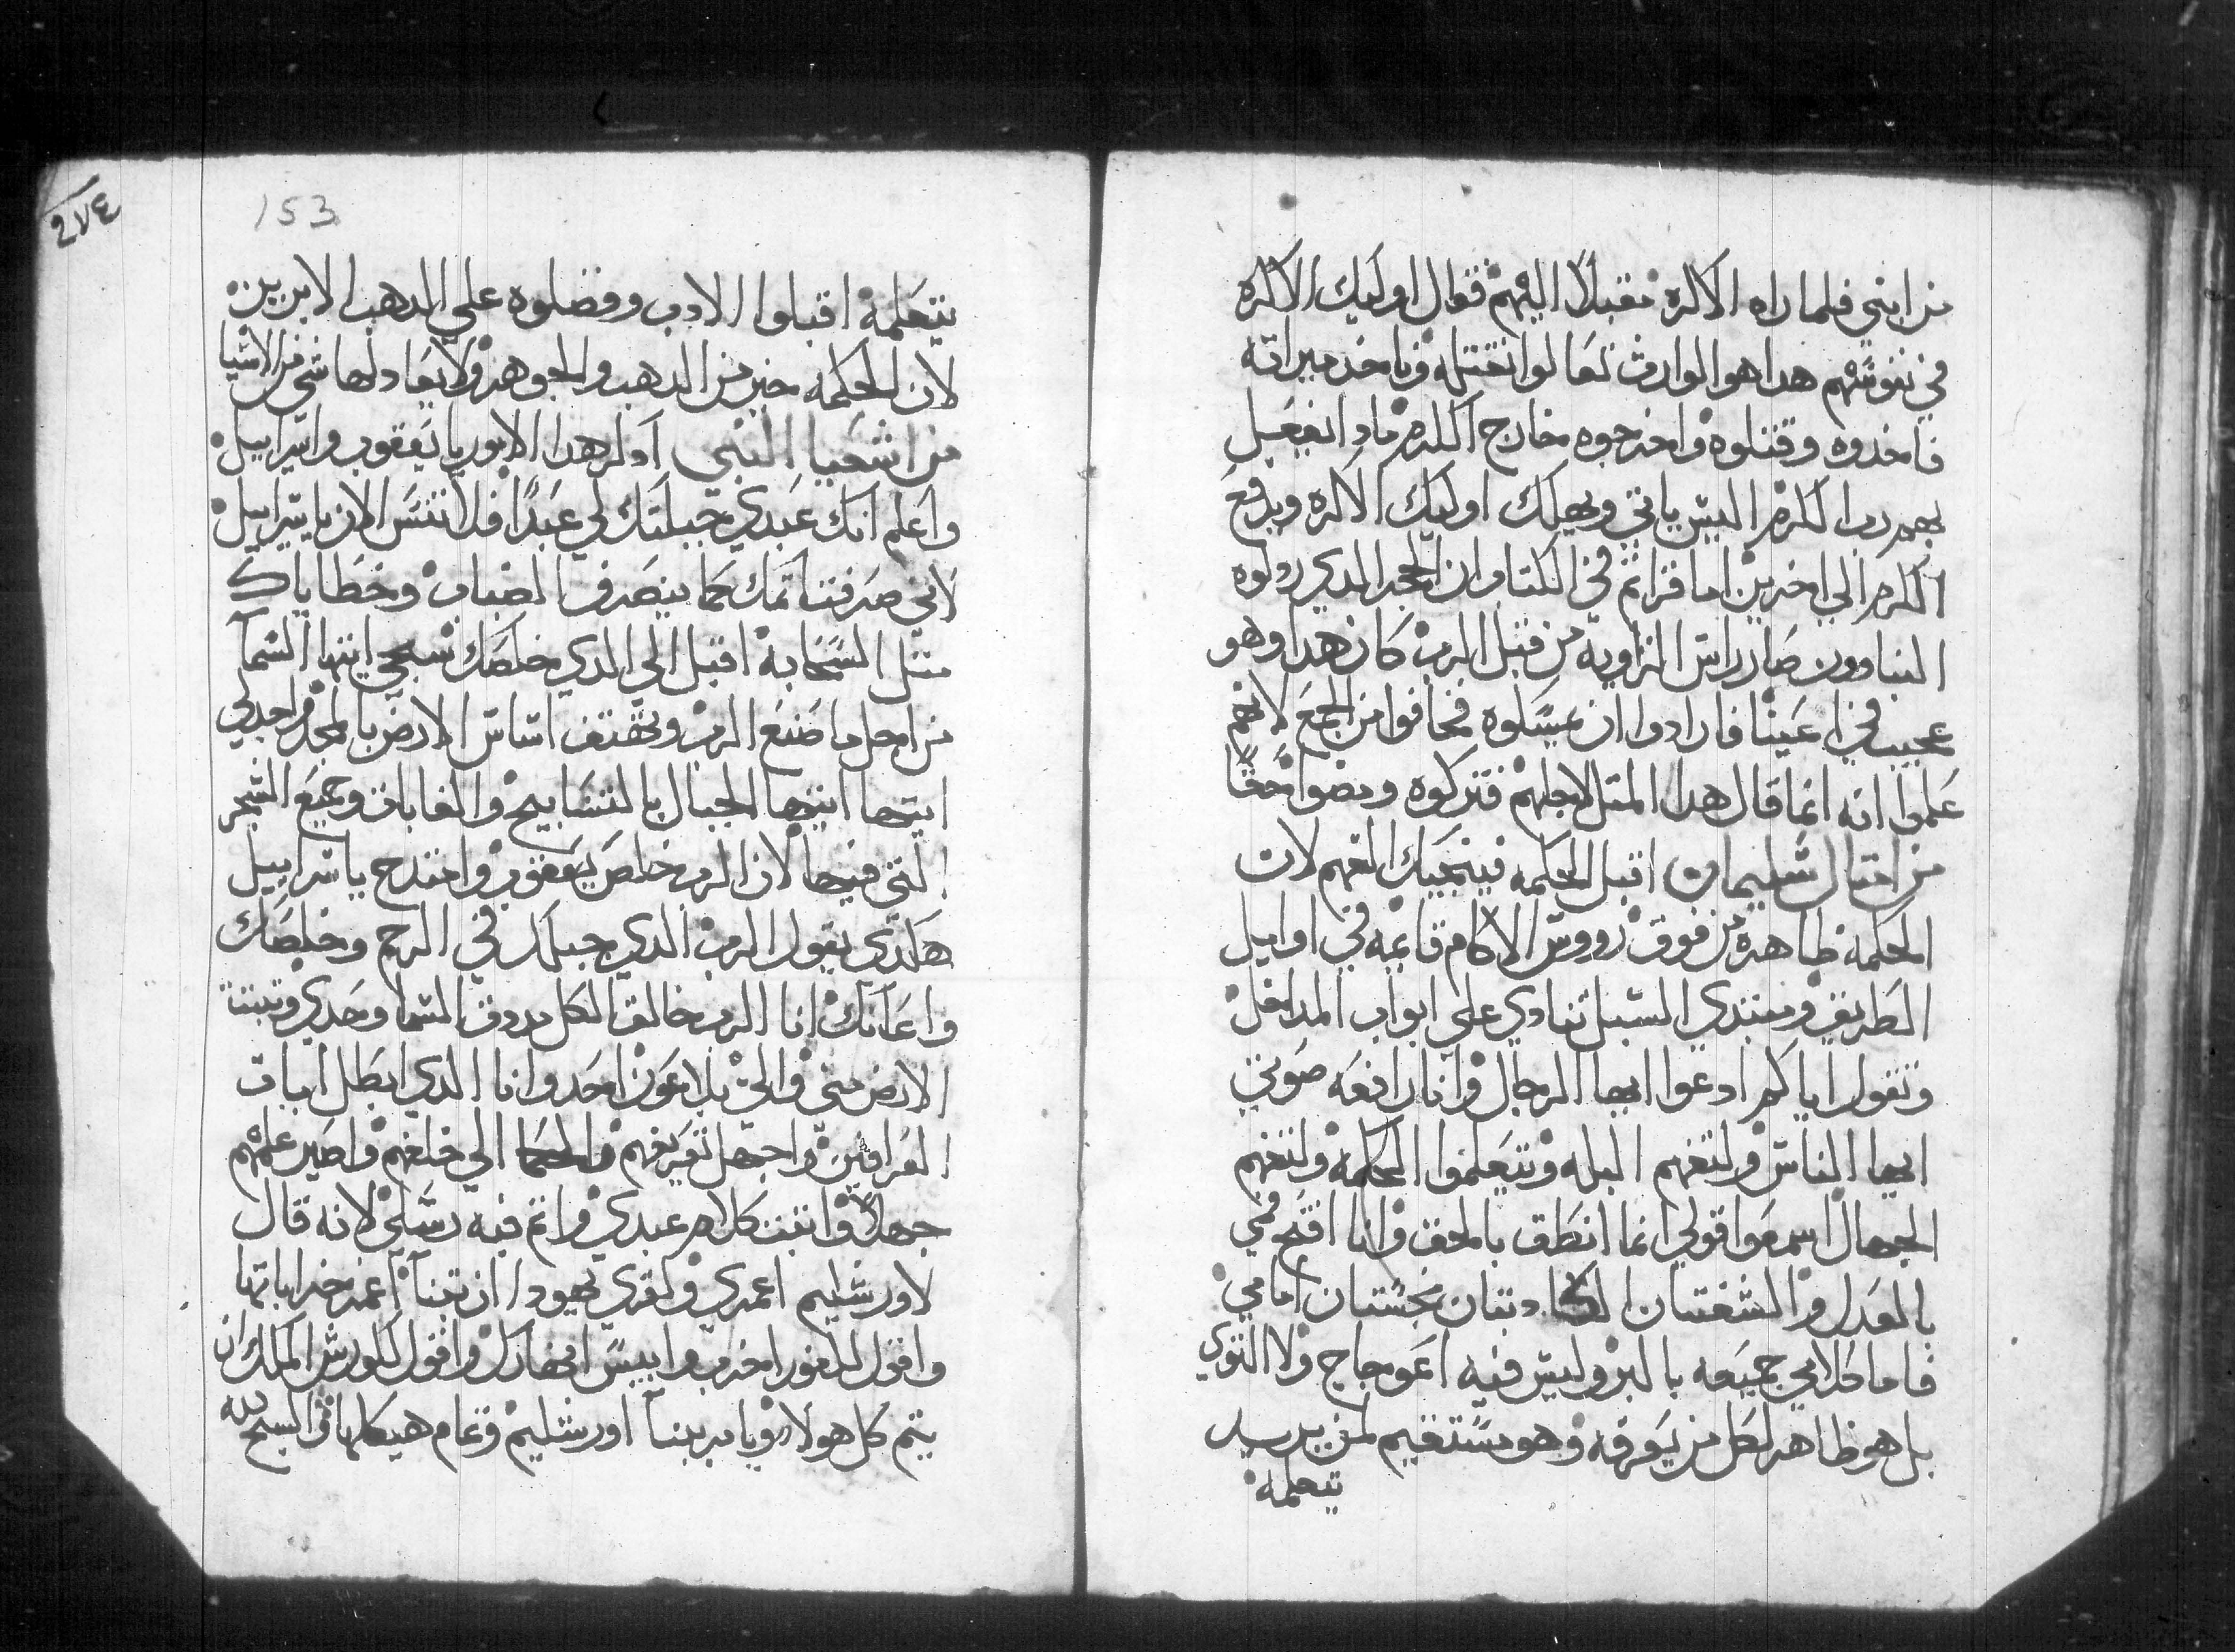 من ابني فلما راه الاكره مقبلاً اليهم فقال اوليك الاكره
في نفوسهم هدا هو الوارت تعالوا نقتله وناخد ميراته
فاخدوه وقتلوه واخرجوه خارج الكرم مادا يفعل
بهم رب الكرم اليس ياتي ويهلك اوليك الاكره ويدفع
الكرم الي اخرين اما قراتم في الكتاب ان الحجر الدي ردلوه
البناوون صار راس الزاويه من قبل الرب كان هدا وهو
عجيب في اعيننا فارادوا ان يمسكوه فخافوا من الجمع لانهم
علموا انه انما قال هدا المتل لاجلهم فتركوه ومضوا حقًا
من امتال سليمان اقبل الحكمه فينجيك الفهم لان
الحكمه ظاهره من فوق رووس الاكام قايمه في اوايل
الطريق ومبتدي السبل تنادي علي ابواب المداخل
وتقول اياكم ادعوا ايها الرجال وانا رافعه صوتي
ايها الناس ولتفهم البله وتتعلموا الحكمه ولتفهم
الجهال اسمعوا قولي انما انطق بالحق وانا افتح فمي
بالعدل والشفتان الكادبتان نجستان امامي
فاما كلامي جميعه بالبر وليس فيه اعوجاج ولا التوي
بل هو ظاهر لكل من يعرفه وهو مستقيم لمن يريد
يتعلمه
٢٧٤
153
يتعلمه اقبلوا الادب وفضلوه علي الدهب الابريز
لان الحكمه خير من الدهب والجوهر ولا يعادلها شي من الاشيا
من اشعيا النبي ادكر هدا الامور يا يعقوب واسراييل
واعلم انك عبدي جبلتك لي عبدًا فلا تنس الان يا اسراييل
لاني صرفت اتمك كما ينصرف الضباب وخطاياك
متل السحابه اقبل الي الدي خلصك سبحي ايتها السما
من اجل ما صنع الرب وتهتف اساس الارض بالمجد واجدلي
ايتها ايتها الجبال بالتسابيح والغابات وجميع الشجر
التي فيها لان الرب خلص يعقوب وامتدح باسراييل
هكدي يقول الرب الدي جبلك في الرحم وخلصك
واعانك انا الرب خالق الكل مددت السما وحدي وتبتت
الارض مني والي بلا عون احد وانا الدي ابطل ايات
العرافين واجهل تعريفهم والحكما الي خلفهم واصير علمهم
جهلاً واتبت كلام عبدي واتم فيه رسلي لانه قال
لاورشليم اعمري ولقري يهودا ان تبنا اعمر خراباتها
واقول للغور اخرب وايبس انهارك واقول لكورش الملك ان
يتم كل هولاء ويامر ببنا اورشليم وتمام هيكلها والسبح لله